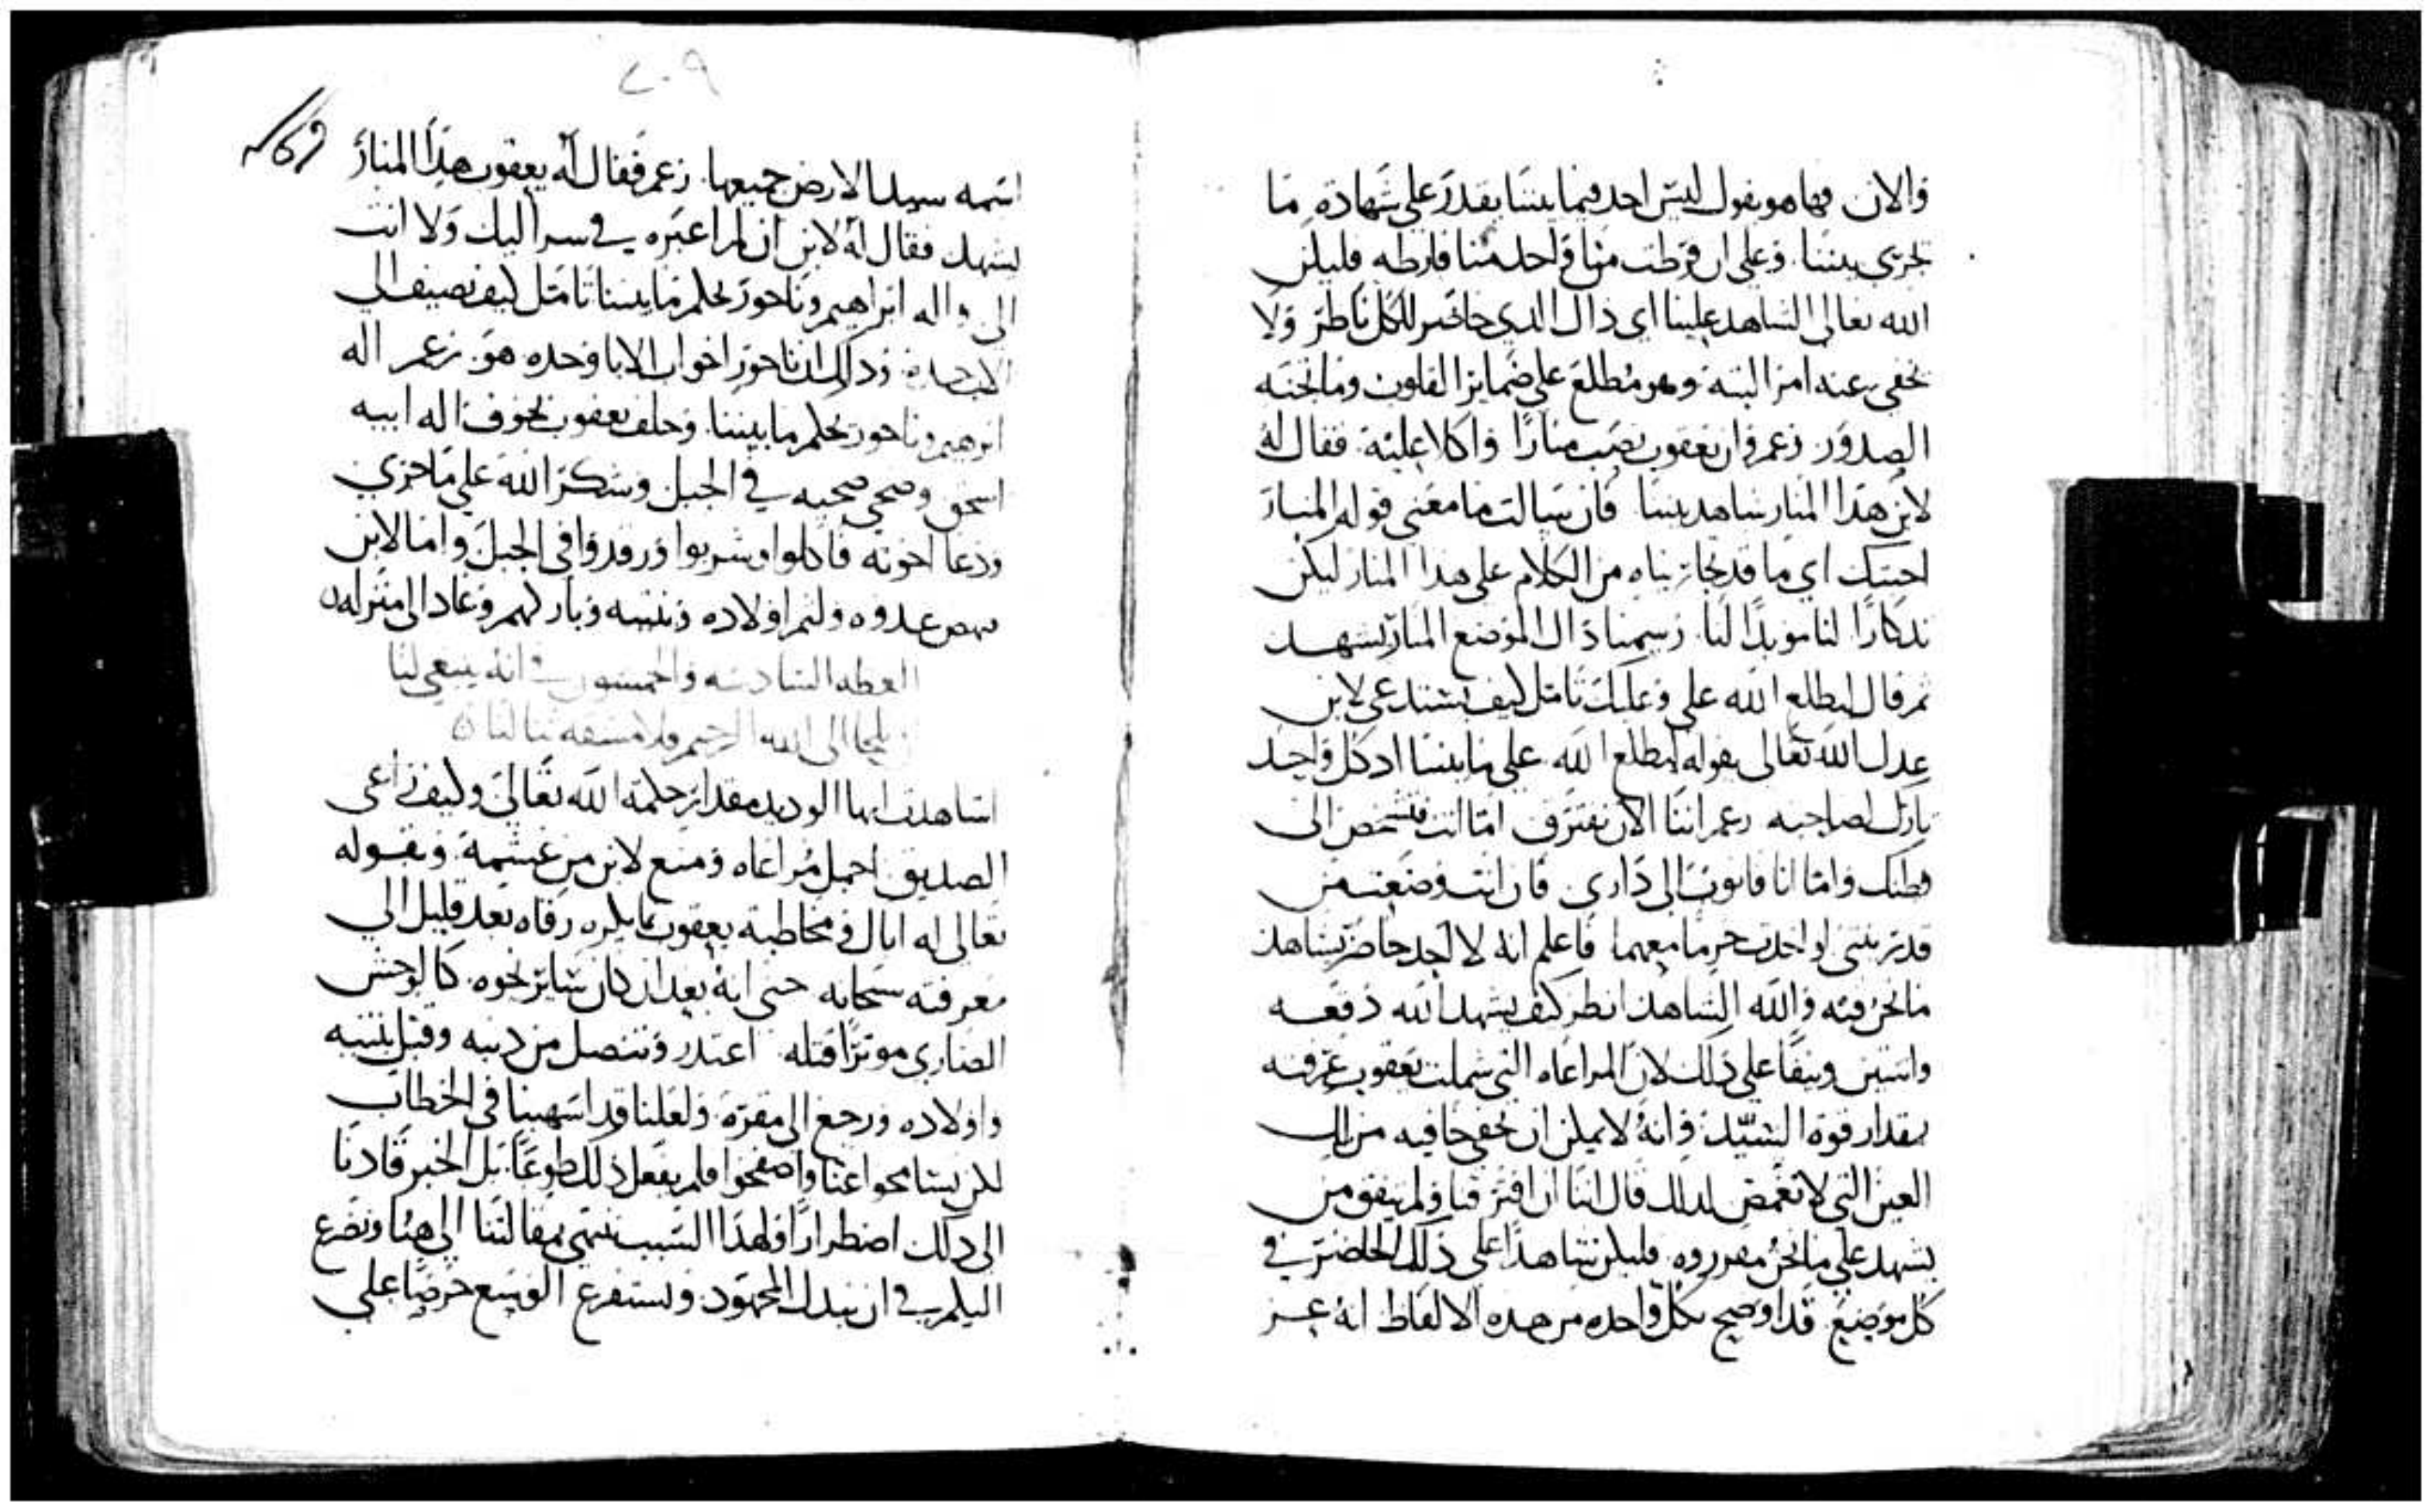 والان فها هو يقول ليس احد فيما بيننا يقدر على شهادة ما
يجري بيننا وعلى ان فرطت منا واحد منا فارطه فليكن
الله تعالى الشاهد علينا اي ذاك الذي حاضر للكل ناظر ولا
يخفى عنه امر البتة وهو مطلع على ضماير القلوب وما تجنه
الصدور زعم وان يعقوب نصب منارا واكلا عليه فقال له
لابن هذا المنار شاهد بيننا فان سالت ما معنى قوله المنار
اجبتك اي ما قد تجازيناه من الكلام على هذا المنار ليكن
تذكارا لنا موبدا لنا وسمينا ذاك الموضع المنار يشهد
ثم قال ليطلع الله علي وعليك تامل كيف يستدعي لابن
عدل الله تعالى بقوله ليطلع الله على ما بيننا اذ كل واحد
تارك لصاحبه زعم اننا الان نفترق اما انت فتشخص الى
وطنك واما انا فاتوجه الى داري فان انت وضعت من
قدر بنتي او اخدت حرما معهما فاعلم انه لا احد حاضر يشاهد
ما نحن فيه والله الشاهد انظر كيف يشهد الله دفعه
واثنين ونيفا على ذلك لان المراعاه التي شملت يعقوب عرفته
بمقدار قوة السيد وانه لا يمكن ان يخفى خافيه من تلك
العين التي لا تغمض لذلك قال اننا ان افترقنا ولم يتفق من
يشهد على ما نحن مقرروه فليكن شاهدا على ذلك الحاضر في
كل موضع قد اوضح بكل واحده من هذه الالفاظ انه عز
٢٠٩
اسمه سيد الارض جميعها زعم فقال له يعقوب هذا المنار
يشهد فقال له لابن ان لم اعبره في سراليك ولا انت
الي واله ابراهيم وناحور يحكم ما بيننا تامل كيف نصيف الى
وذلك ان ناحور اخو اب الابا وحده هو زعم اله
ابرهيم وناحور يحكم ما بيننا وحلف يعقوب بخوف اله ابيه
اسحق وضحى ضحيه في الجبل وشكر الله على ما جرى
ودعا اخوته فاكلوا وشربوا ورقدوا في الجبل واما لابن
نهض غدوه ولثم اولاده وبنتيه وباركهم وعاد الى منزله
العظه السادسه والخمسون في انه ينبغي لنا
ان نلجا الى الله الرحيم فلا مشقه تنالنا
اشاهدت ايها الوديد مقدار حكمة الله تعالى وكيف راعى
الصديق اجمل مراعاه ومنع لابن من غشمه وبقوله
تعالى له اياك في مخاطبة يعقوب بما يكره رقاه بعد قليل الى
معرفته سبحانه حتى انه بعد ان كان ساير نحوه كالوحش
الضاري موثرا قتله اعتذر وتنصل من ذنبه وقبل بنتيه
واولاده ورجع الى مقره ولعلنا قد اسهبنا في الخطاب
لكن سامحوا عنا واصفحوا فلم نفعل ذلك طوعا بل الخبر قادنا
الى ذلك اضطرارا فلهذا السبب ننهي مقالتنا الى هنا ونضرع
اليكم في ان نبدل المجهود ونستفرغ الوسع حرصا على